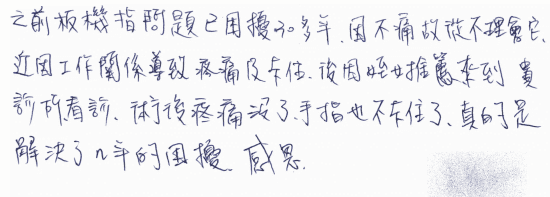 之前板機指問題已困擾20多年.因不痛故從不理會它.
近因工作關係導致疼痛及卡住.後因姪女推薦來到貴
診所看診.術後疼痛沒了.手指也不卡住了.真的是
解決了n年的困擾.感恩.